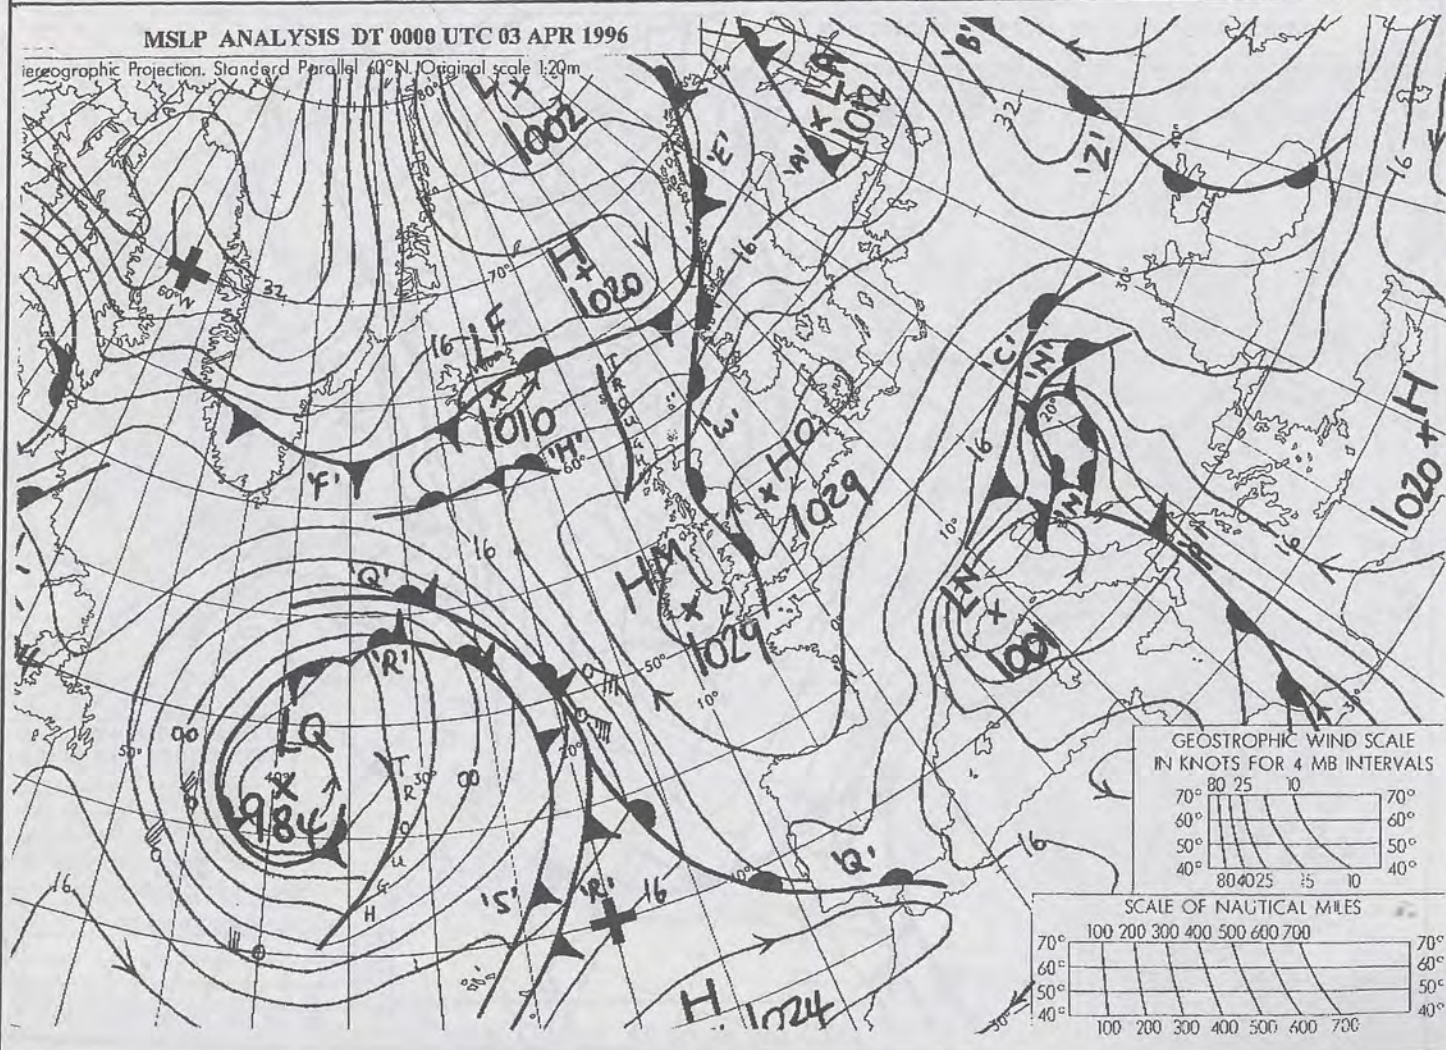 MSLP ANALYSIS DT 0000 UTC 03 APR 1996
ereographic Projection. Standard Parallel 60°N. Original scale 1:20m
80°
L
1002
'E'
LA
1012
'A'
'B'
32
'Z'
16
60°N
32
70°
H
1020
16
30°
16
LF
1010
TROUGH
'C'
'N'
20°
H
1020
'W'
HO
1029
16
'F'
'H'
60°
10°
'N'
16
16
HM
1029
LN
1001
'Q'
'R'
50°
10°
0°
30°
LQ
984
50°
00
40°
TROUGH
30°
00
20°
16
'S'
'R'
16
40°
'Q'
16
H
1024
30°
GEOSTROPHIC WIND SCALE
IN KNOTS FOR 4 MB INTERVALS
80 25 10
70° 70°
60° 60°
50° 50°
40° 40°
80 40 25 15 10
SCALE OF NAUTICAL MILES
100 200 300 400 500 600 700
70° 70°
60° 60°
50° 50°
40° 40°
100 200 300 400 500 600 700